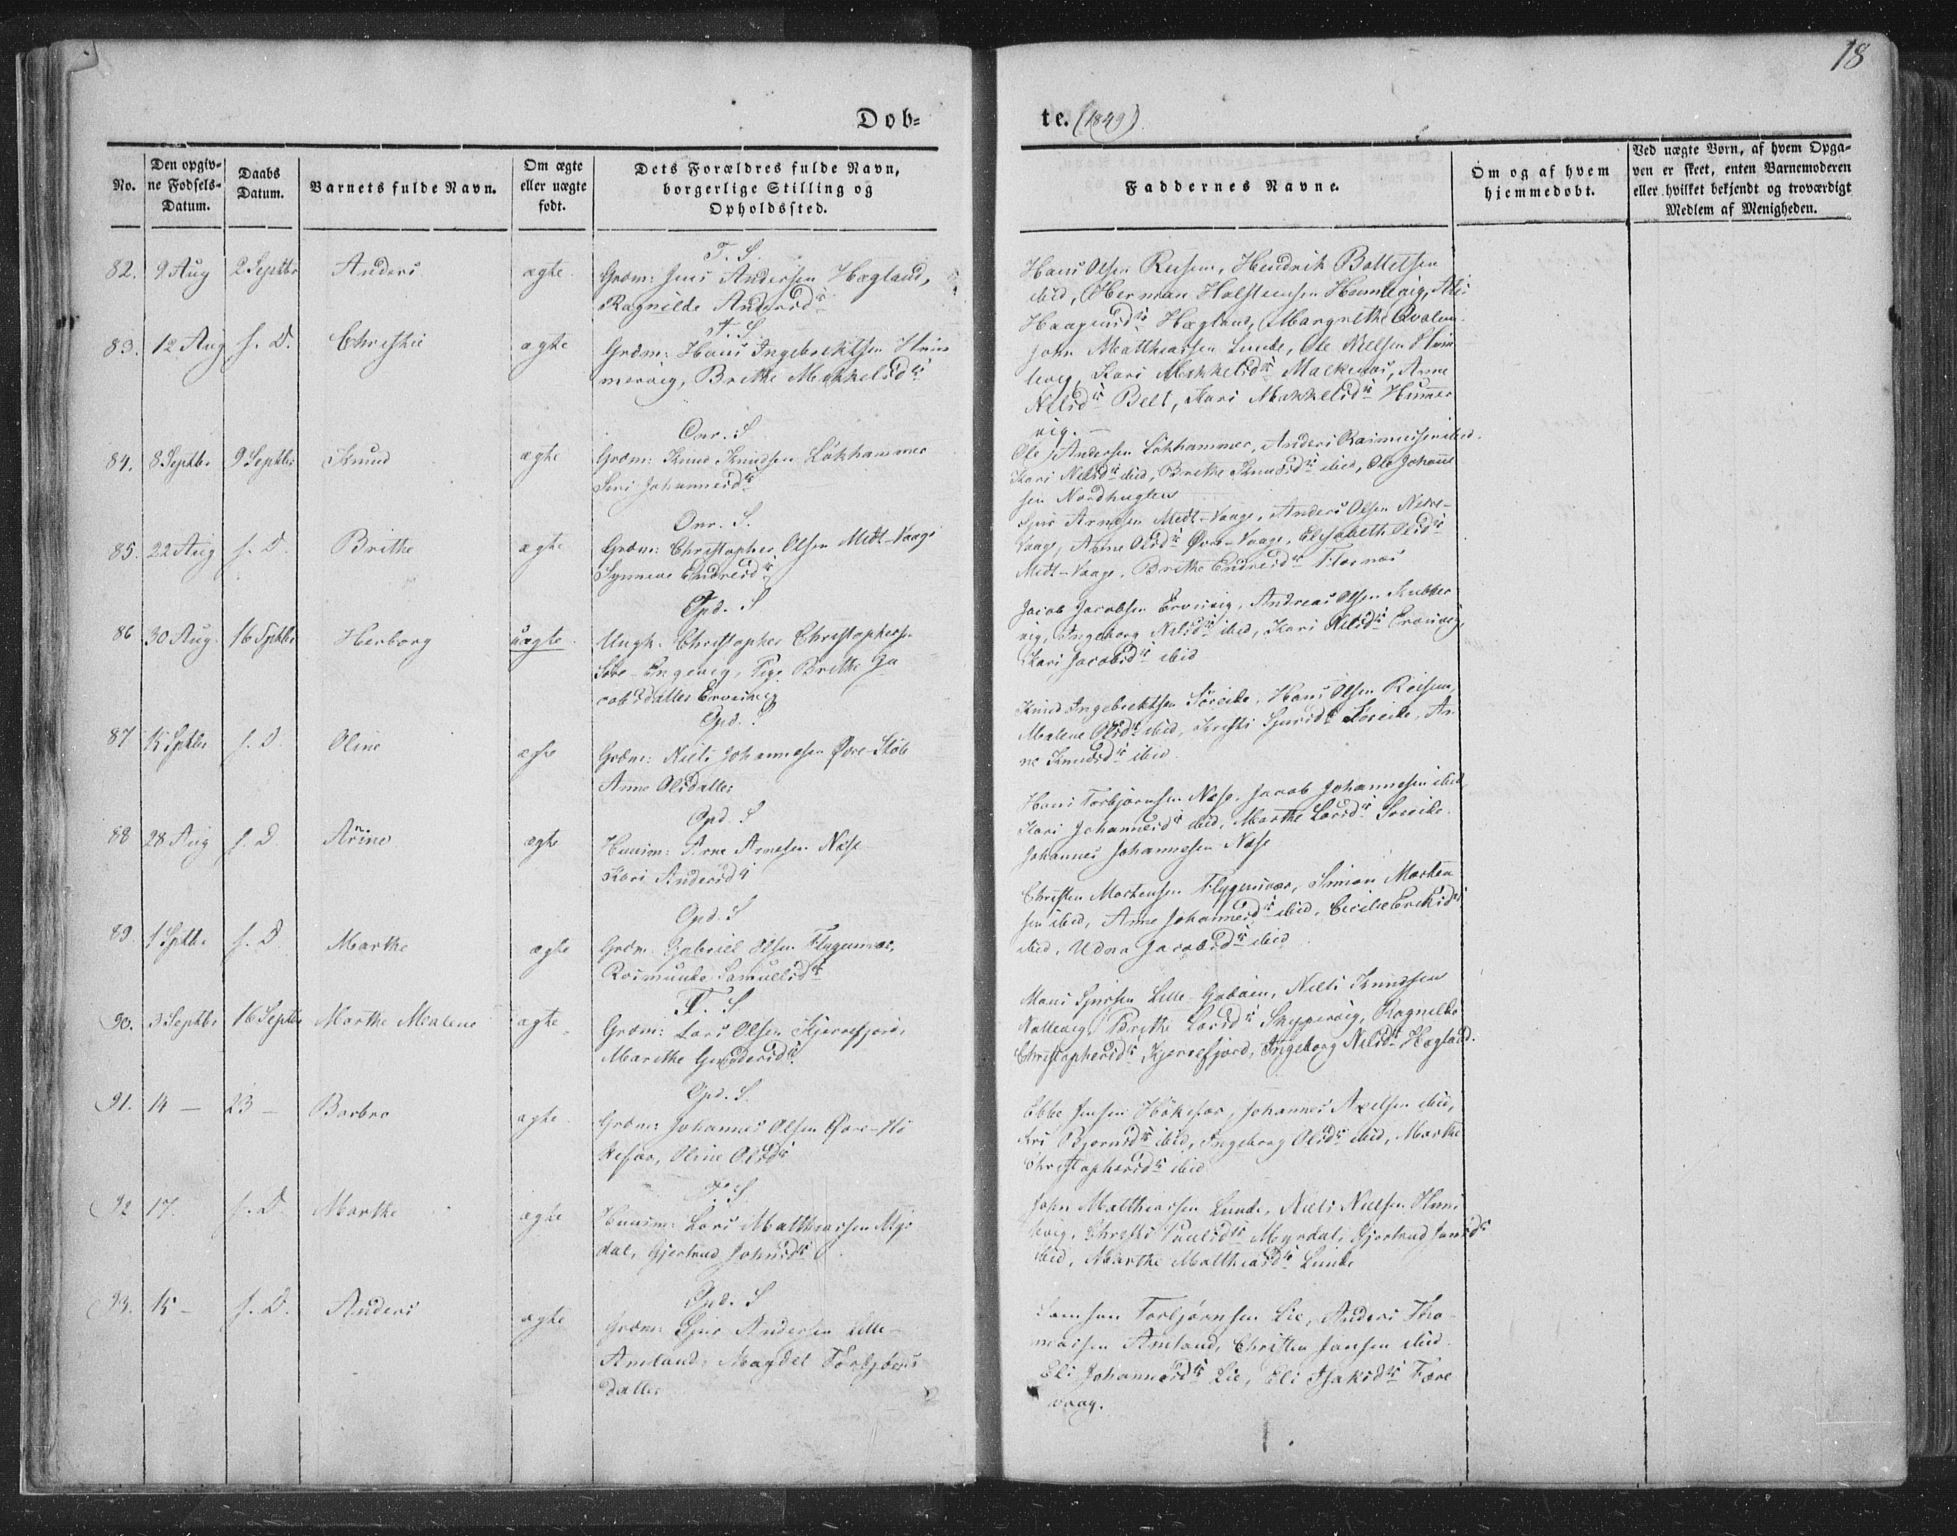 18
Dob=
te. (1849)
No.
Den opgiv=
ne Fødsels=
Datum.
Daabs
Datum.
Barnets fulde Navn.
Om ægte
eller uægte
født.
Dets Forældres fulde Navn,
borgerlige Stilling og
Opholdssted.
Faddernes Navne.
Om og af hvem
hjemmedøbt.
Ved uægte Børn, af hvem Opga=
ven er skeet, enten Barnemoderen
eller hvilket bekjendt og troværdigt
Medlem af Menigheden.
82. 9 Aug 2 Septbr Anders ægte
T. S.
Grdm: Jens Andersen Hægland,
Ragnilde Andersdr
Hans Olsen Hendrik Bottelsen
ibid, Herman Holstensen
Haagensdr Hægland, Margrethe
83. 12 Aug s. D. Christie ægte
T. S.
Grdm: Hans Ingebrektsen Him
mervig, Brithe Mikkelsdr
John Matthiassen Lunde, Ole Nielsen
levig, Kari Mikkelsdr Malkenes, Anne
Nilsdr Belt, Kari Mikkelsdr Himmer
vig.
84. 8 Septbr 9 Septbr Knud ægte
Onr. S
Grdm: Knud Knudsen Løkhammer
Siri Johannesdr
Ole Andersen Løkhammer, Anders Rasmussen ibid.
Kari Nilsdr ibid, Brithe Knudsdr ibid, Ole Johann
sen Nordhuglen
85. 22 Aug s. D. Brithe ægte
Onr. S.
Grdm: Christopher Olsen Midt-Vaage
Synneve Endresdr
Sjur Arnesen Midt-Vaage, Anders Olsen Nedre-
Vaage, Anne Olsdr Øvre-Vaage, Elisabeth Olsdr
Midt-Vaage, Brithe Endresdr Flornes
86 30 Aug. 16 Sptbr Herborg uægte
Opd. S
Ungk: Christopher Christophers.
Søre-Engevig, Pige Brithe Ja
cobsdatter Ervesvig
Jacob Jacobsen Ervesvig, Andreas Olsen Kubber
vig, Ingeborg Nilsdr ibid, Kari Nilsdr Ervesvig,
Kari Jacobsdr ibid
87 15 Sptbr s. D. Oline ægte
Opd. S
Grdm: Niels Johannesen Øvre-Støle
Anne Olsdatter
Knud Ingebrektsen Søreide, Hans Olsen
Malene Olsdr ibid, Kristi Sjursdr Søreide, An
ne Knudsdr ibid.
88 28 Aug s. D Arne ægte
Opd. S
Huusm: Arne Arnesen Næse
Kari Andersdr
Hans Torbjørnsen Næse, Jacob Johannesen ibid
Kari Johannesdr ibid, Marthe Larsdr Søreide.
Johannes Johannesen Næse
89. 1 Sptbr s. D Marthe ægte
Opd. S
Grdm: Gabriel Olsen Flygenvær,
Rasmunde Samuelsdr
Christen Mortensen Flygenvær, Simon Morten
sen ibid, Anne Johannesdr ibid, Cecilie Eriksdr
ibid, Udna Jacobsdr ibid
90. 3 Septbr 16 Septbr Marthe Malene ægte
T. S
Grdm: Lars Olsen Kjerrefjord,
Marithe Gundersdr
Mons Sjursen Lille-Godøen, Niels Knudsen
Nattevig, Brithe Larsdr Skyppervig, Ragnilde
Christophersdr Kjerrefjord, Ingeborg Nilsdr Hægland.
91. 14 – 23 – Barbro ægte
Opd. S.
Grdm: Johannes Olsen Øvre-Hø
kefær, Oline Olsdr
Ebbe Jensen Høkefær, Johannes Axelsen ibid,
Kri Bjørnsdr ibid, Ingeborg Olsdr ibid, Marthe
Christophersdr ibid
92 17. s. D. Marthe ægte
T. S
Huusm: Lars Matthiassen Myr
dal, Gjertrud Johnsdr.
John Matthiassen Lunde, Niels Nielsen Him
levig, Christi Paulsdr Myrdal, Gjertrud Jonsdr
ibid, Marthe Matthiasdr Lunde
93. 15 – s. D. Anders ægte
Opd. S
Grdm: Sjur Andersen Lille-
Amland, Magdel Torbjørns
datter
Samson Torbjørnsen Lie, Anders Tho-
massen Amland, Christen Jansen ibid.
Eli Johannesdr Lie, Eli Isaksdr Fære
vaag.